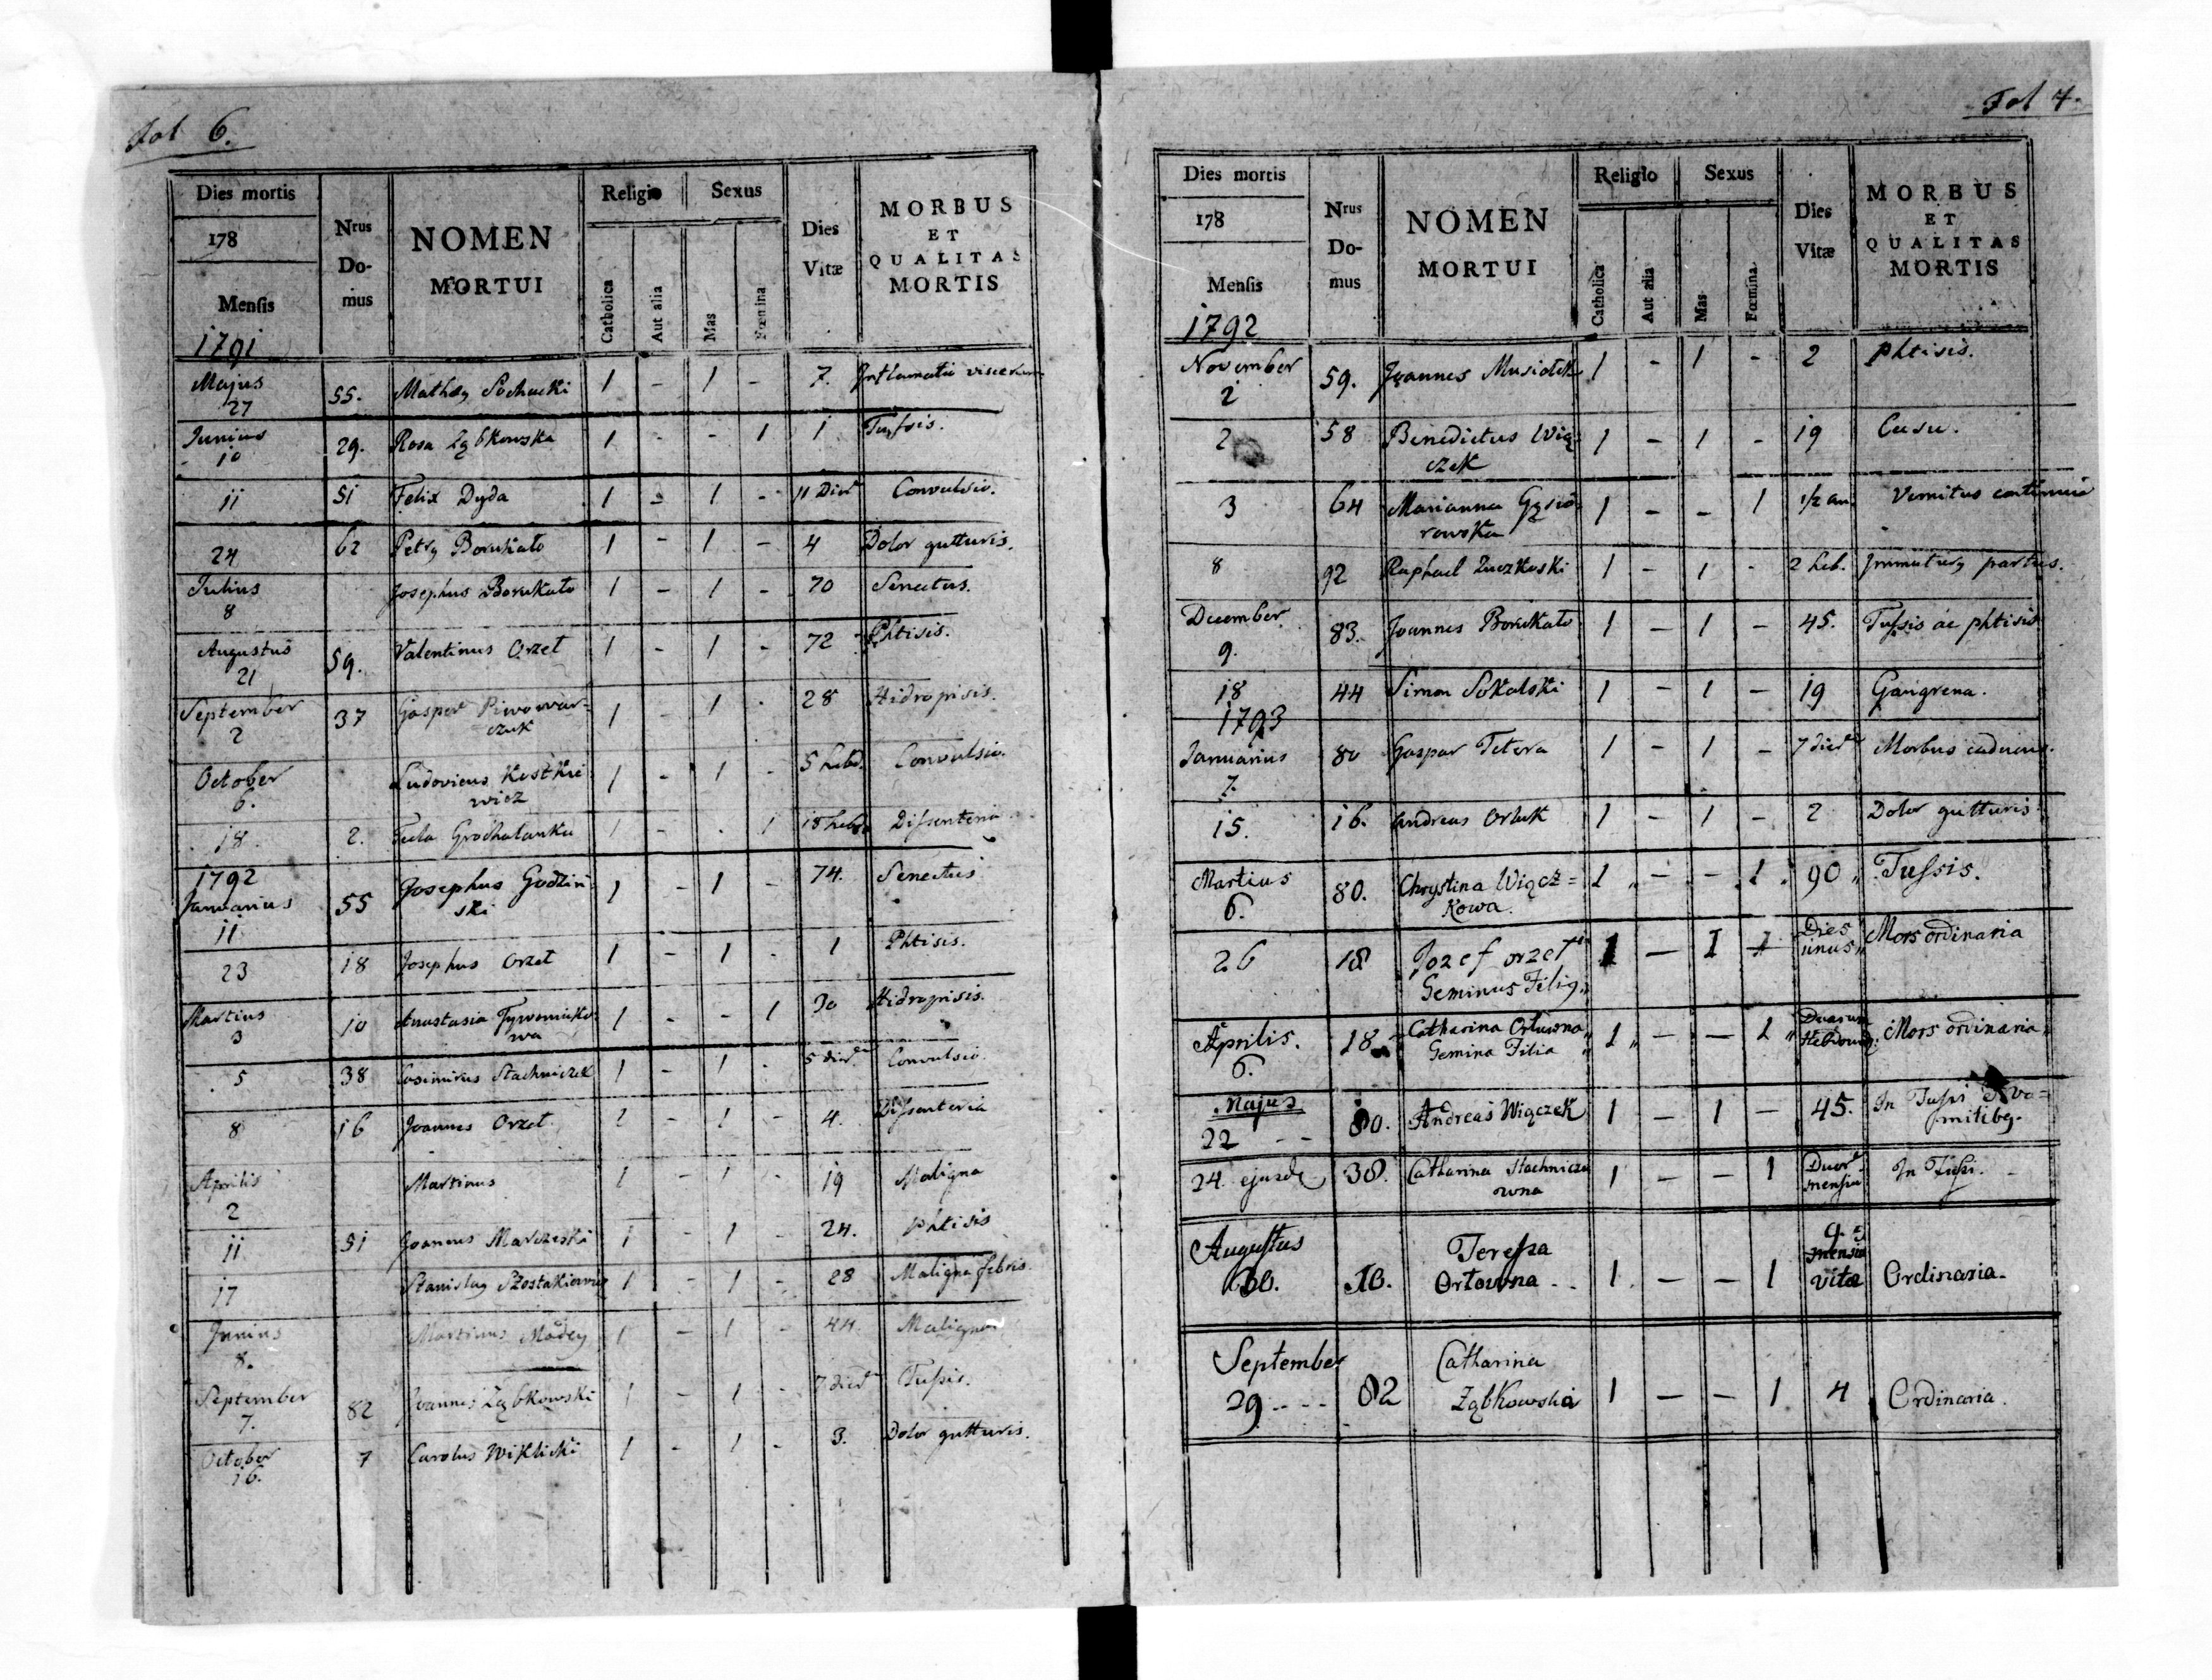 Fol 6.
Dies mortis
178
Mensis
1791
Nrus Do-
mus
NOMEN
MORTUI
Religio
Catholica
Aut alia
Sexus
Mas
Fœmina
Dies
Vitæ
MORBUS
ET
QUALITAS
MORTIS
Majus
27 55. Mathæ Sochacki 1 - 1 - 7. Inflamatio viscerum
Junius
10 29. Rosa Ząbkowska 1 - - 1 1 Tussis.
11 51 Felix Dyda 1 - 1 - 11 Dier Convulsio.
24 62 Petrg Borukało 1 - 1 - 4 Dolor gutturis.
Julius
8 Josephus Borukało 1 - 1 - 70 Senectus.
Augustus
21 59. Valentinus Orzeł 1 - 1 - 72 Phtisis.
September
2 37 Gasper Piwowar-
czuk 1 - 1 - 28 Hidropisis.
October
6. Ludovicus Kostkie
wicz 1 - 1 - 5 hebd. Convulsio.
18. 2. Tecla Grochalanka 1 - - 1 18 hebd Dissenteria
1792
Januarius
11 55 Josephus Godziń
ski 1 - 1 - 74. Senectus
23 18 Josephus Orzeł 1 - 1 - 1 Phtisis.
Martius
3 10 Anastasia Tywoniuko-
wa 1 - - 1 30 Hidropisis.
5 38 Casimirus Stachniczek 1 - 1 - 5 dier Convulsio.
8 16 Joannes Orzeł. 1 - 1 - 4. Dissenteria
Aprilis
2 Martinus 1 - 1 - 19 Maligna
11 51 Joannes Marczeski 1 - 1 - 24. phtisis
17 Stanislag Szostakiewicz 1 - 1 - 28 Maligna febris.
Junius
8. Martinus Madey 1 - 1 - 44. Maligna
September
7. 82 Joannes Ząbkowski 1 - 1 - 7 dier Tussis.
October
16. 7 Carolus Wiklicki 1 - 1 - 3. Dolor gutturis.
Fol 7.
Dies mortis
178
Mensis
1792
Nrus
Do-
mus
NOMEN
MORTUI
Religio
Catholica
Aut alia
Sexus
Mas
Fœmina
Dies
Vitæ
MORBUS
ET
QUALITAS
MORTIS
November
2 59. Joannes Musiałek 1 - 1 - 2 phtisis.
2 58 Benedictus Wią
czek 1 - 1 - 19 Casu.
3 64 Marianna Gąsio
rowska 1 - - 1 1/2 an. Vomitus continuus
8 92 Raphael Luczkoski 1 - 1 - 2 heb. Immaturg partus.
December
9. 83. Joannes Borukało 1 - 1 - 45. Tussis ac phtisis
18 44 Simon Sokalski 1 - 1 - 19 Gangrena.
1793
Januarius
7. 80 Gaspar Tetera 1 - 1 - 7 dier Morbus caducus.
15. 16. Andreas Orluk 1 - 1 - 2 Dolor gutturis
Martius
6. 80. Chrystina Wiącz=
kowa. 1 - - 1. 90 Tussis.
26 18 Jozef orzeł
Geminus Filig 1 - 1 1 Dies
unus Mors ordinaria
Aprilis.
6. 18. Catharina Orłowna
Gemina Filia 1 - - 1 Duarum
Hebdom. Mors ordinaria
Majus
22 - - 80. Andreas Wiączek 1 - 1 - 45. In Tussi & vo=
mitibg.
24. ejusd. 38. Catharina Stachnicza
owna 1 - - 1 Duor
mensiu In Tussi.
Augustus
30. 18. Teressa
Orłowna - - 1. - - 1 9.
mensiu
vitæ Ordinaria.
September
29. - - - 82 Catharina
Ząbkowska 1 - - 1 4 Ordinaria.